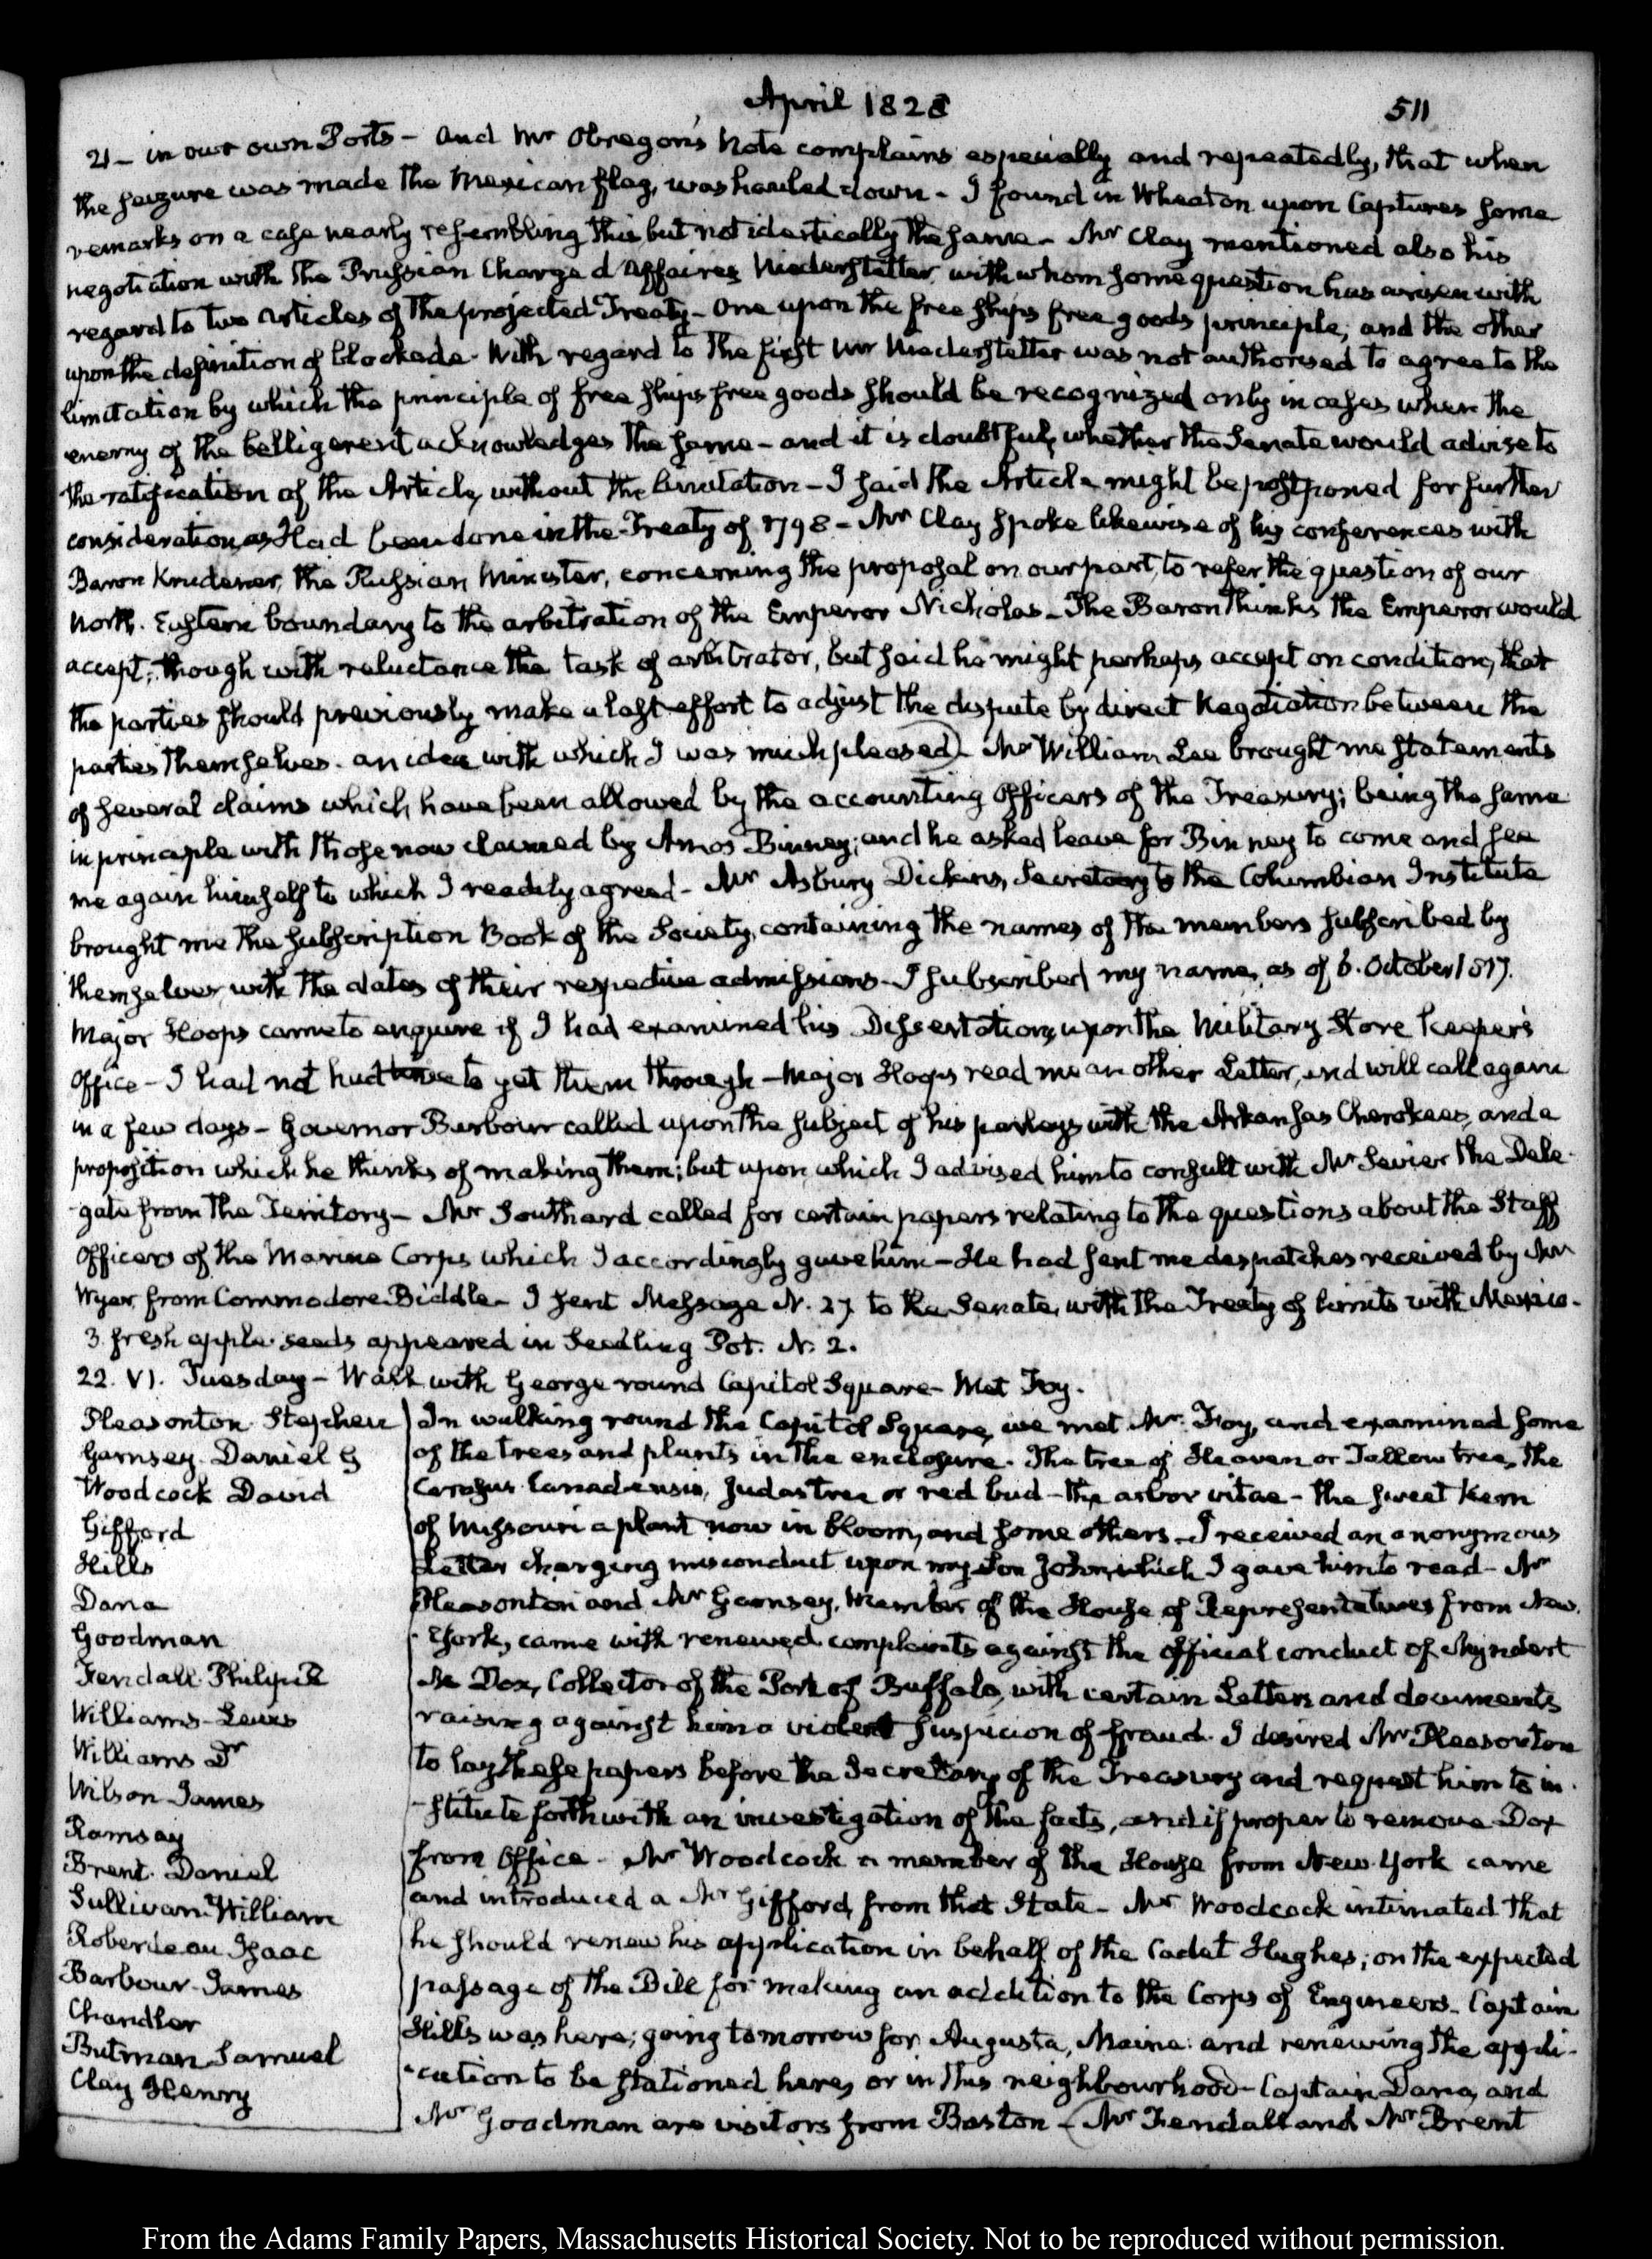 April 1828
511
21 – in our own Ports – and Mr Obregon's Note complains especially and repeatedly, that when
the seizure was made the Mexican flag, was hauled down – I found in Wheaton upon Captures some
remarks on a case nearly resembling this but not identically the same – Mr Clay mentioned also his
negotiation with the Prussian Chargé d'Affaires Niederstetter with whom some question has arisen with
regard to two Articles of the projected Treaty – One upon the free ships free goods principle, and the other
upon the definition of blockade. With regard to the first Mr Niederstetter was not authorised to agree to the
limitation by which the principle of free ships free goods should be recognized only in cases when the
enemy of the belligerent acknowledges the same – and it is doubtful, whether the Senate would advise to
the ratification of the Article, without the limitation – I said the Article might be postponed for further
consideration, as Had been done in the Treaty of 1798 – Mr Clay spoke likewise of his conferences with
Baron Krudener, the Russian Minister, concerning the proposal on our part, to refer the question of our
North. Eastern boundary to the arbitration of the Emperor Nicholas – The Baron thinks the Emperor would
accept, though with reluctance the task of arbitrator, but said he might perhaps accept on condition, that
the parties should previously make a last effort to adjust the dispute by direct Negotiation between the
parties themselves. an idea with which I was much pleased) – Mr William Lee brought me statements
of several claims which have been allowed by the accounting Officers of the Treasury; being the same
in principle with those now claimed by Amos Binney; and he asked leave for Binney to come and see
me again himself to which I readily agreed – Mr Asbury Dickins, Secretary to the Columbian Institute
brought me the subscription Book of the Society, containing the names of the members subscribed by
themselves, with the dates of their respective admissions – I subscribed my name, as of 6. October 1817.
Major Hoops came to enquire if I had examined his Dissertations, upon the Military Store keeper's
Office – I had not had time to get them through – Major Hoops read me another Letter, and will call again
in a few days – Governor Barbour called upon the subject of his parleys with the Arkansas Cherokees, and a
proposition which he thinks of making them; but upon which I advised him to consult with Mr Sevier the Dele-
-gate from the Territory – Mr Southard called for certain papers relating to the questions about the Staff
Officers of the Marine Corps which I accordingly gave him – He had sent me despatches received by Mr
Wyer from Commodore Biddle – I sent Message N. 27 to the Senate, with the Treaty of limits with Mexico.
3. fresh apple seeds appeared in Seedling Pot. N. 2.
22. VI. Tuesday – Walk with George round Capitol Square – Met Foy.
Pleasonton Stephen
Garnsey. Daniel G
Woodcock David
Gifford
Hills
Dana
Goodman
Fendall Philip R
Williams Lewis
Williams Dr
Wilson James
Ramsay
Brent. Daniel
Sullivan William
Roberdeau Isaac
Barbour James
Chandler
Butman Samuel
Clay Henry
In walking round the Capitol Square, we met Mr Foy, and examined some
of the trees and plants in the enclosure. The tree of Heaven or Tallow tree, the
Canadensis, Judas tree or red bud – the arbor vitae – the sweet
of Missouri a plant now in bloom, and some others – I received an anonymous
Letter charging misconduct upon my Son John, which I gave him to read – Mr
Pleasonton and Mr Garnsey, Member of the House of Representatives from New.
York, came with renewed complaints against the official conduct of Myndert
M Dox, Collector of the Port of Buffalo, with certain Letters and documents
raising against him a violent suspicion of fraud. I desired Mr Pleasonton
to lay these papers before the Secretary of the Treasury and request him to in-
-stitute forthwith an investigation of the facts, and if proper to remove Dox
from Office – Mr Woodcock a member of the House from New York came
and introduced a Mr Gifford, from that State – Mr Woodcock intimated that
he should renew his application in behalf of the Cadet Hughes; on the expected
passage of the Bill for making an addition to the Corps of Engineers – Captain
Hills was here; going tomorrow for Augusta, Maine: and renewing the appli-
-cation to be stationed here, or in this neighbourhood – Captain Dana, and
Mr Goodman are visitors from Boston – (Mr Fendall and Mr Brent
From the Adams Family Papers, Massachusetts Historical Society. Not to be reproduced without permission.